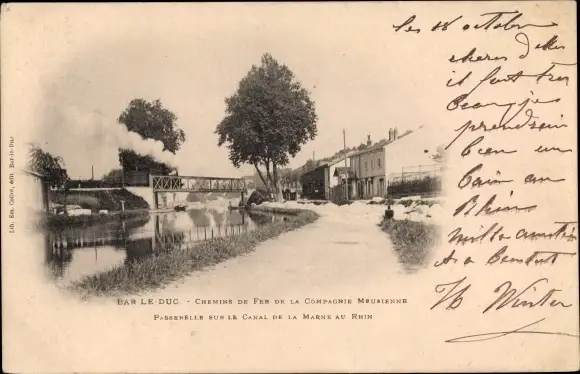 Les 18 octobre
chères
il fait très
je
prendrais
bien un
bain au
Rhin
Mille amitiés
à
Th Winter
BAR LE DUC. - CHEMINS DE FER DE LA COMPAGNIE MEUSIENNE
PASSERELLE SUR LE CANAL DE LA MARNE AU RHIN
Lib. Em. Collot, édit. Bar-le-Duc